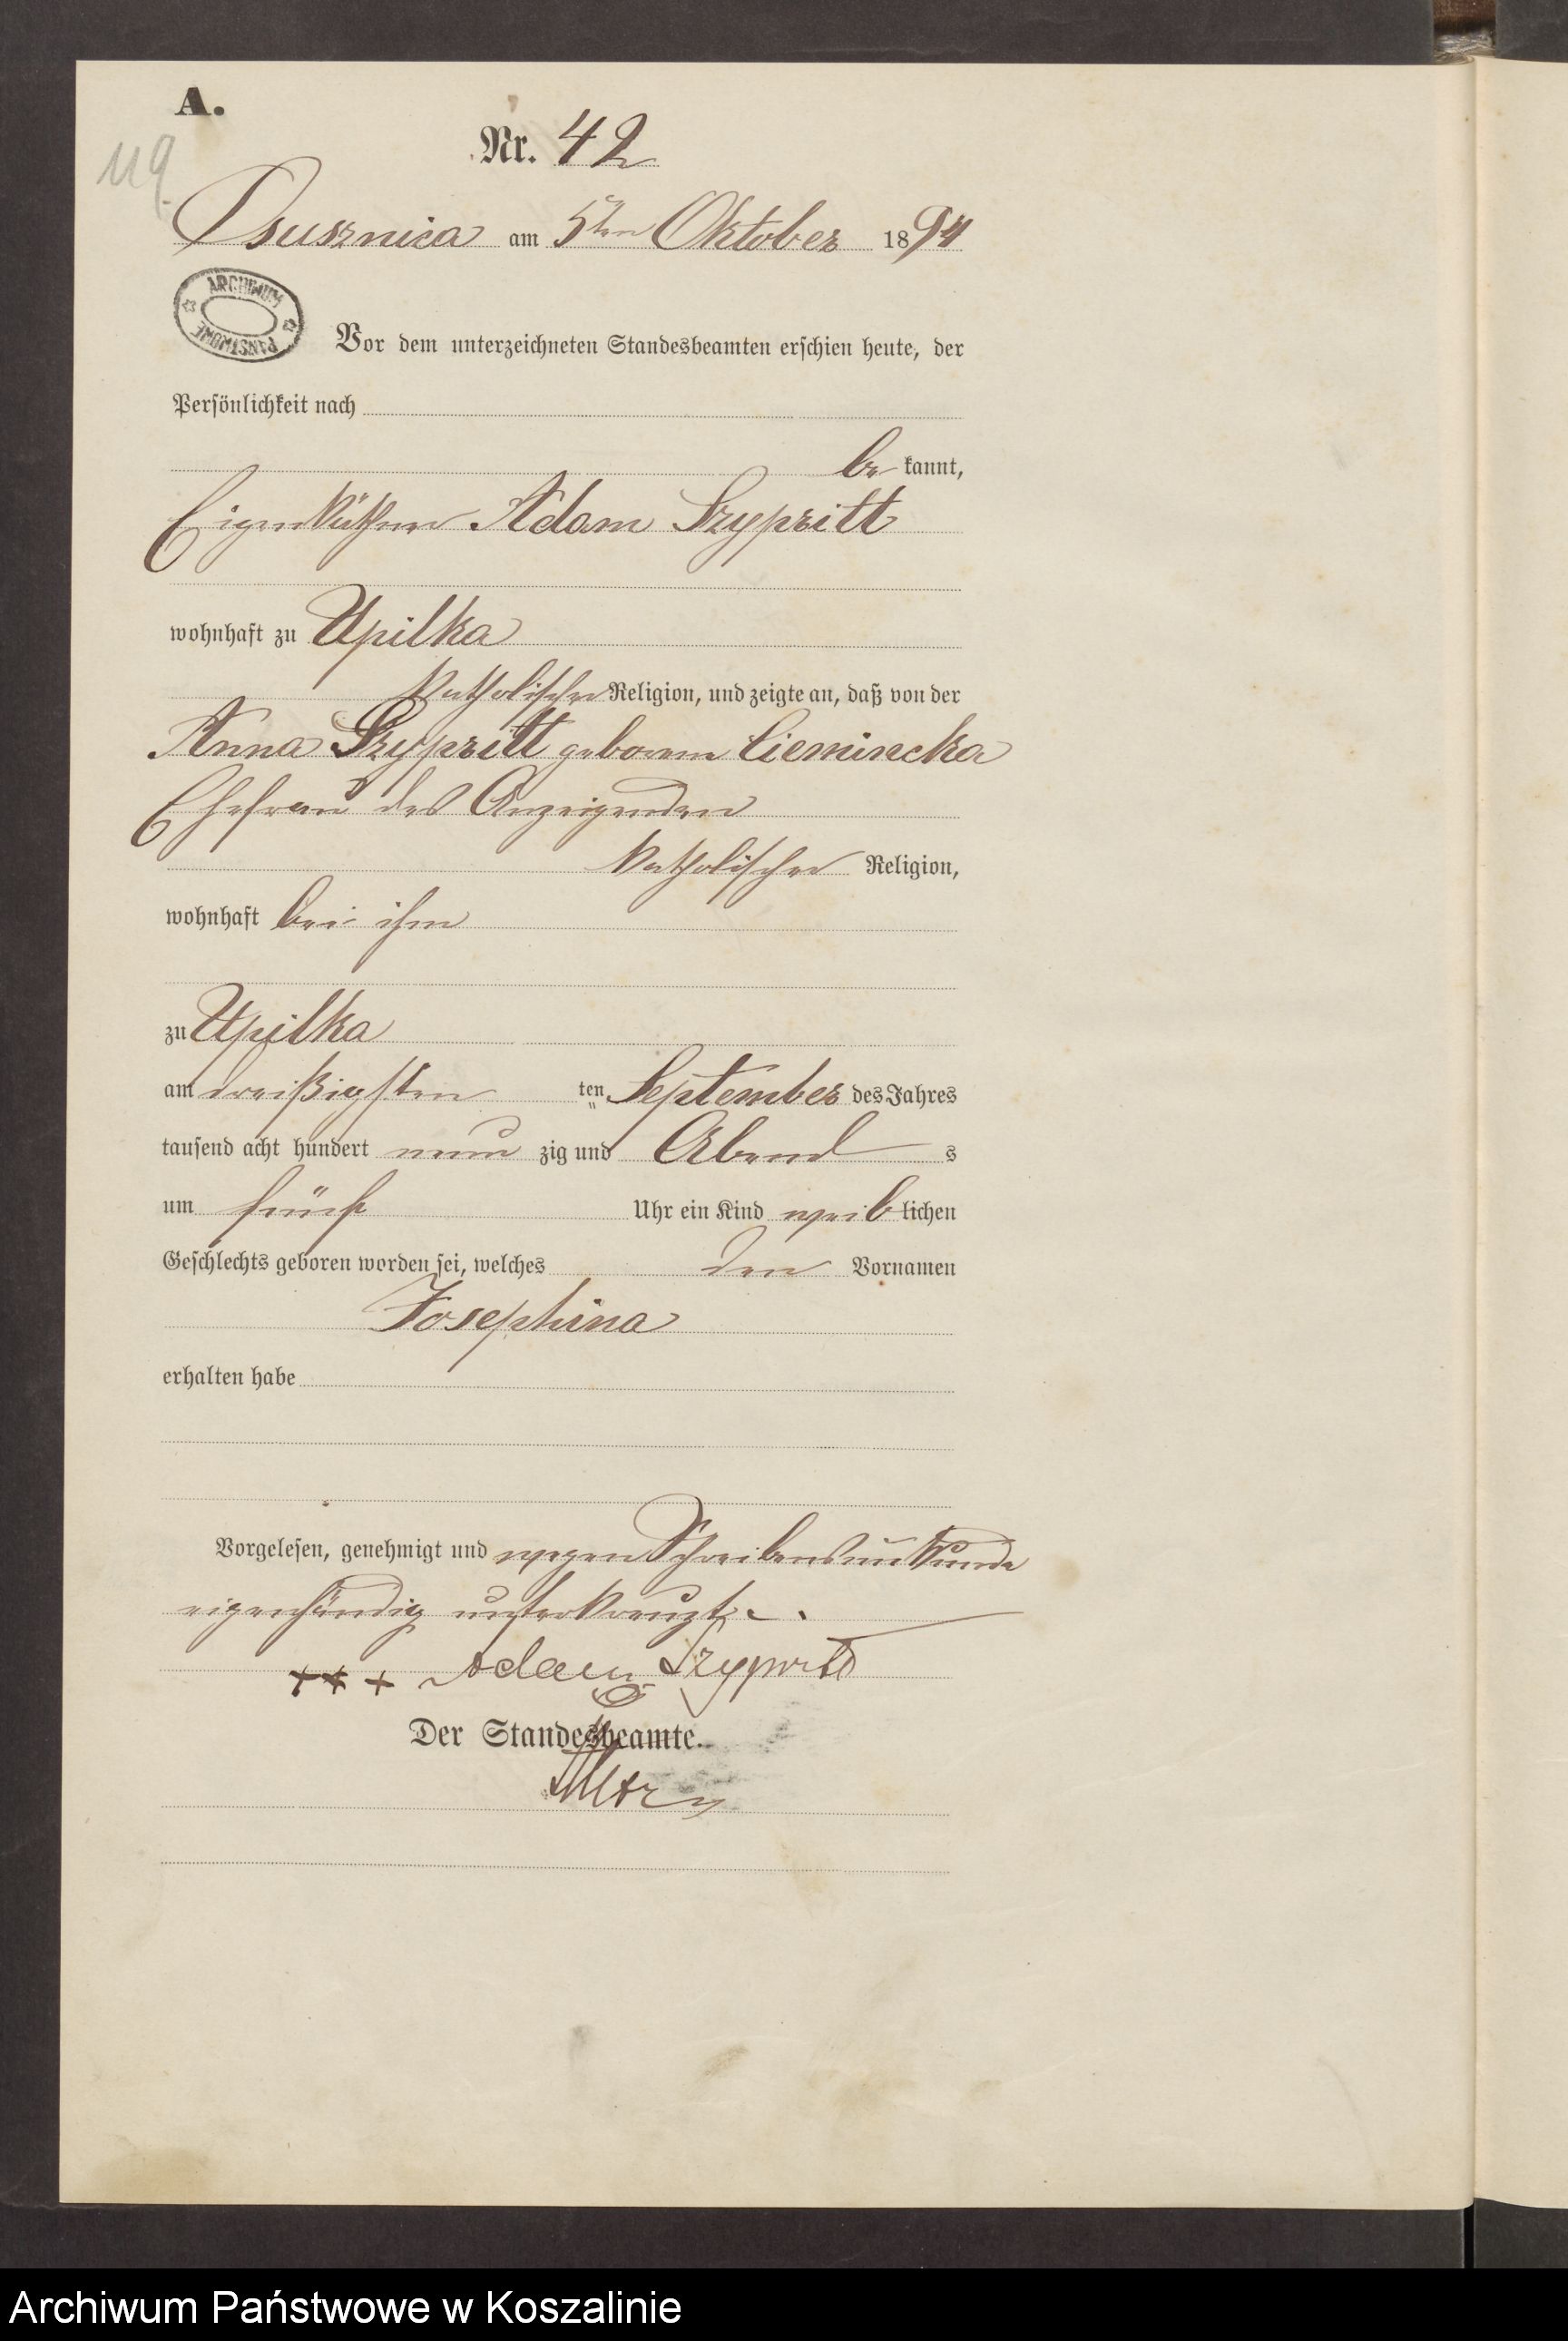 A.
119.
Nr. 42
Psusznica am 5ten Oktober 1894
ARCHIWUM PAŃSTWOWE
Vor dem unterzeichneten Standesbeamten erschien heute, der
Persönlichkeit nach
be kannt,
Eigenkäthner Adam Szypritt
wohnhaft zu Upilka
katholischer Religion, und zeigte an, daß von der
Anna Szypritt geborene Ciemincka
Ehefrau des Anzeigenden
katholischer Religion,
wohnhaft bei ihm
zu Upilka
am dreißigsten ten September des Jahres
tausend acht hundert neun zig und Abend s
um fünf Uhr ein Kind weib lichen
Geschlechts geboren worden sei, welches den Vornamen
Josephina
erhalten habe
Vorgelesen, genehmigt und wegen Schreibensunkunde
eigenhändig unterkreuzt.
+++ Adam Szypritt
Der Standesbeamte.